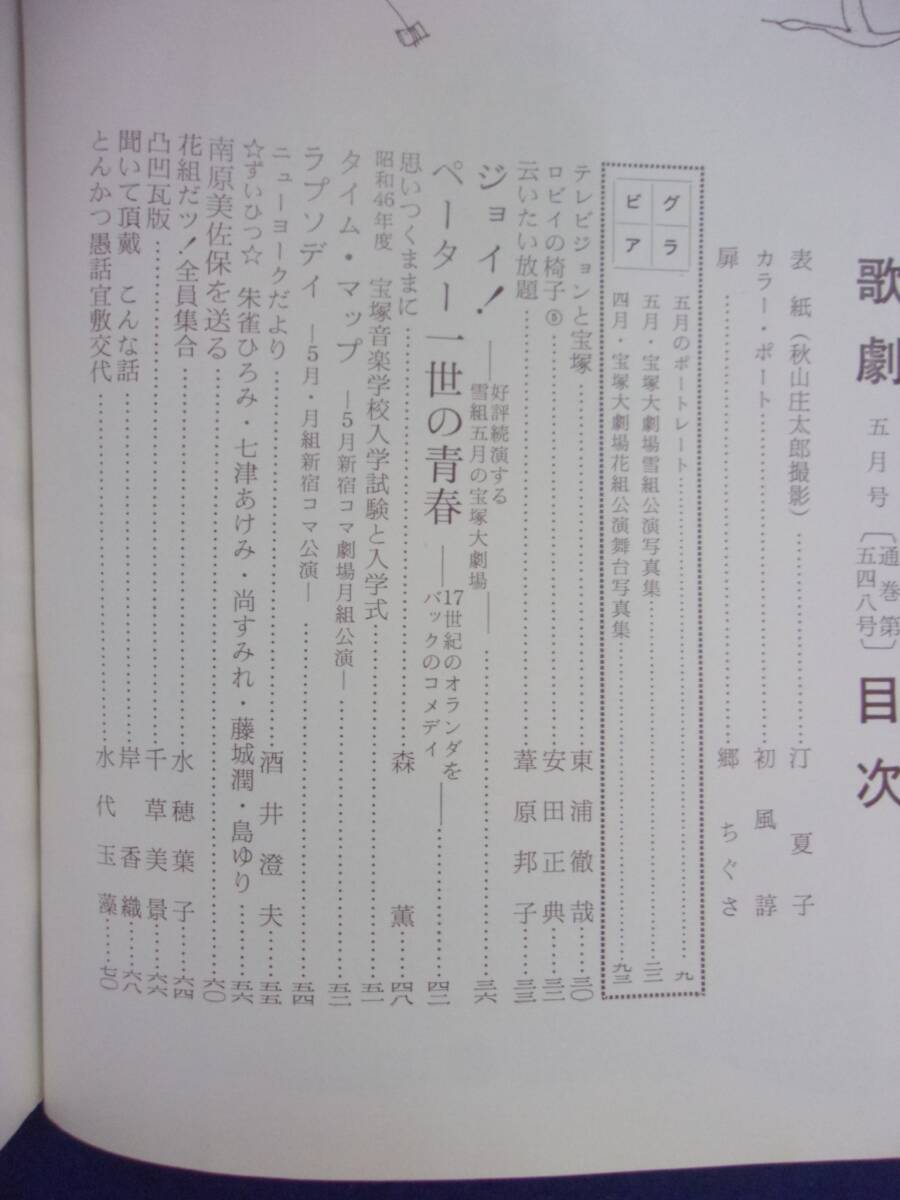 歌劇 五月号〔通巻第五四八号〕 目次
表紙（秋山庄太郎撮影）……汀夏子
カラー・ポート……初風諄
扉……郷ちぐさ
グラビア
五月のポートレート……九
五月・宝塚大劇場雪組公演写真集……二一
四月・宝塚大劇場花組公演舞台写真集……九三
テレビジョンと宝塚……東浦徹哉……三〇
ロビイの椅子⑤……安田正典……三二
云いたい放題……葦原邦子……三三
ジョイ！ ―好評続演する雪組五月の宝塚大劇場―……三六
ペーター一世の青春 ―17世紀のオランダをバックのコメデイ―……四二
思いつくままに……森薫……四八
昭和46年度 宝塚音楽学校入学試験と入学式……五一
タイム・マップ ―5月新宿コマ劇場月組公演―……五二
ラプソデイ ―5月・月組新宿コマ公演―……五四
ニューヨークだより……酒井澄夫……五五
☆ずいひつ☆ 朱雀ひろみ・七津あけみ・尚すみれ・藤城潤・島ゆり……五六
南原美佐保を送る……六〇
花組だッ！全員集合……水穂葉子……六四
凸凹瓦版……千草美景……六六
聞いて頂戴 こんな話……岸香織……六八
とんかつ愚話宜敷交代……水代玉藻……七〇